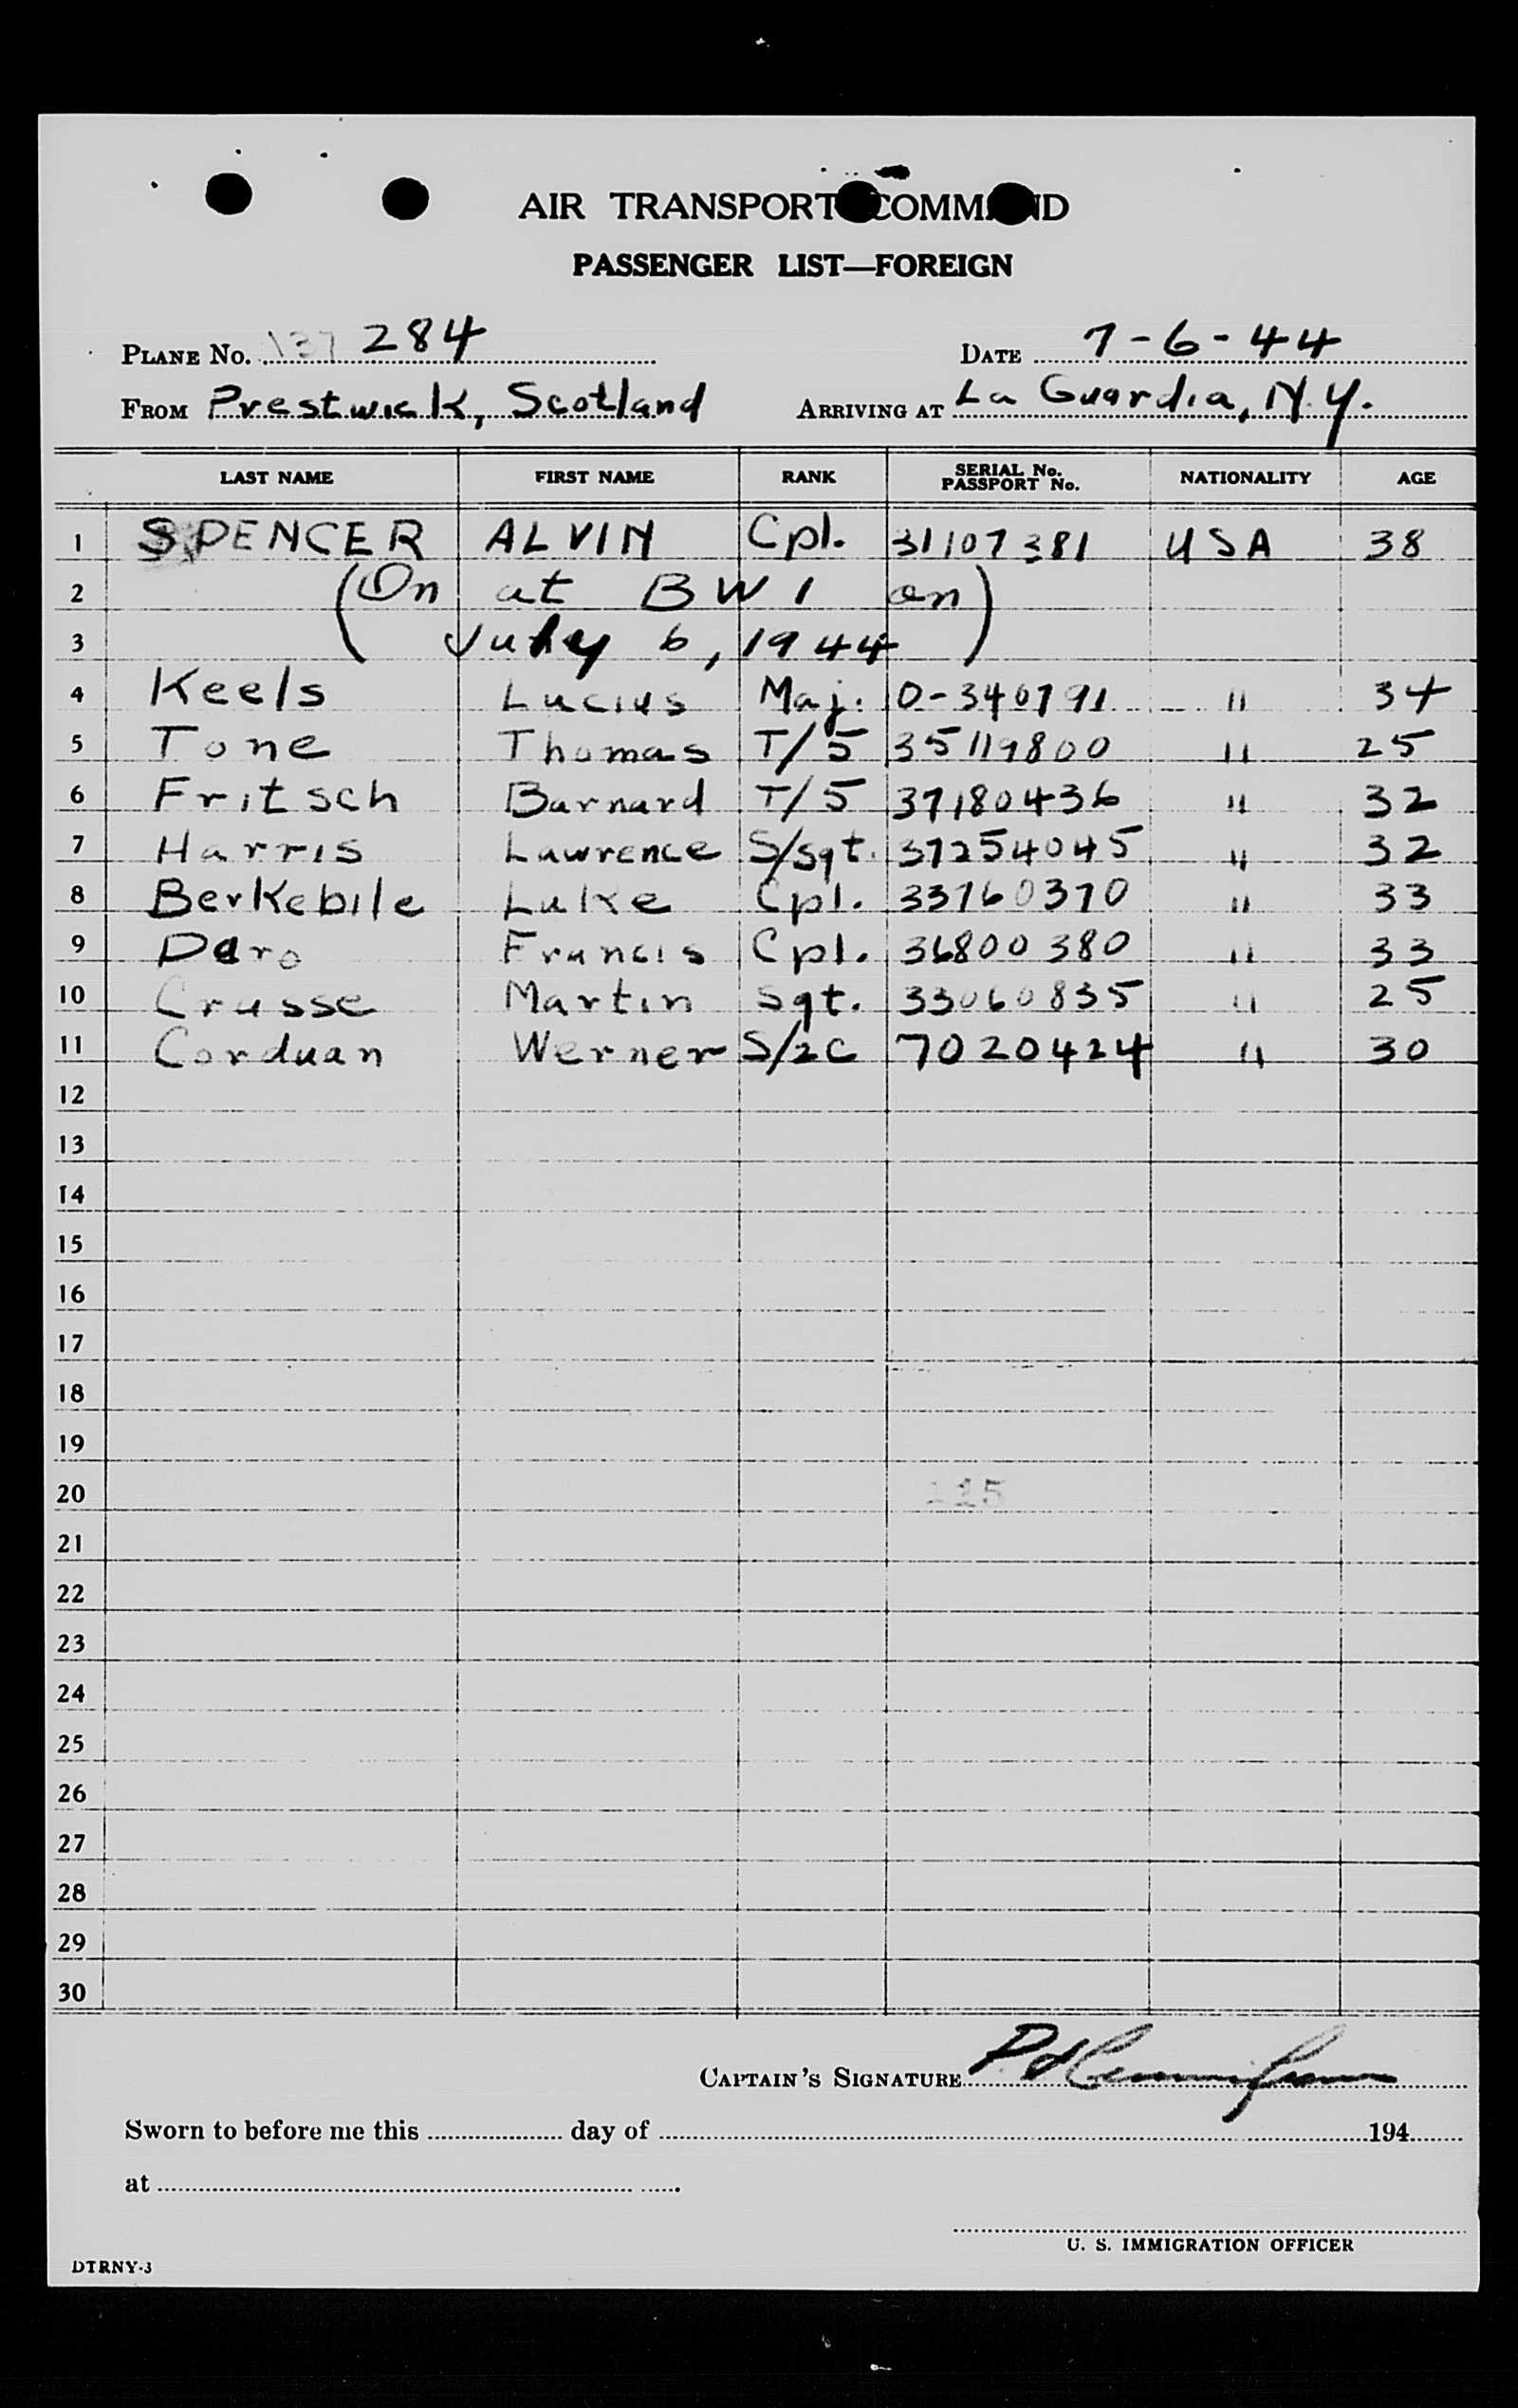 AIR TRANSPORT COMMAND
PASSENGER LIST—FOREIGN
PLANE No. 284 DATE 7-6-44
FROM Prestwick, Scotland ARRIVING AT La Guardia, N.Y.
LAST NAME FIRST NAME RANK SERIAL No. PASSPORT No. NATIONALITY AGE
1 SPENCER ALVIN Cpl. 31107381 USA 38
2 (On at BW 1 on)
3 July 6, 1944
4 Keels Lucius Maj. O-340791 " 34
5 Tone Thomas T/5 35119800 " 25
6 Fritsch Barnard T/5 37180436 " 32
7 Harris Lawrence S/Sgt. 37254045 " 32
8 Berkebile Luke Cpl. 33760370 " 33
9 Daro Francis Cpl. 36800380 " 33
10 Crusse Martin Sgt. 33060835 " 25
11 Corduan Werner S/2C 7020424 " 30
12
13
14
15
16
17
18
19
20
21
22
23
24
25
26
27
28
29
30
CAPTAIN'S SIGNATURE
Sworn to before me this day of 194
at
U. S. IMMIGRATION OFFICER
DTRNY-3